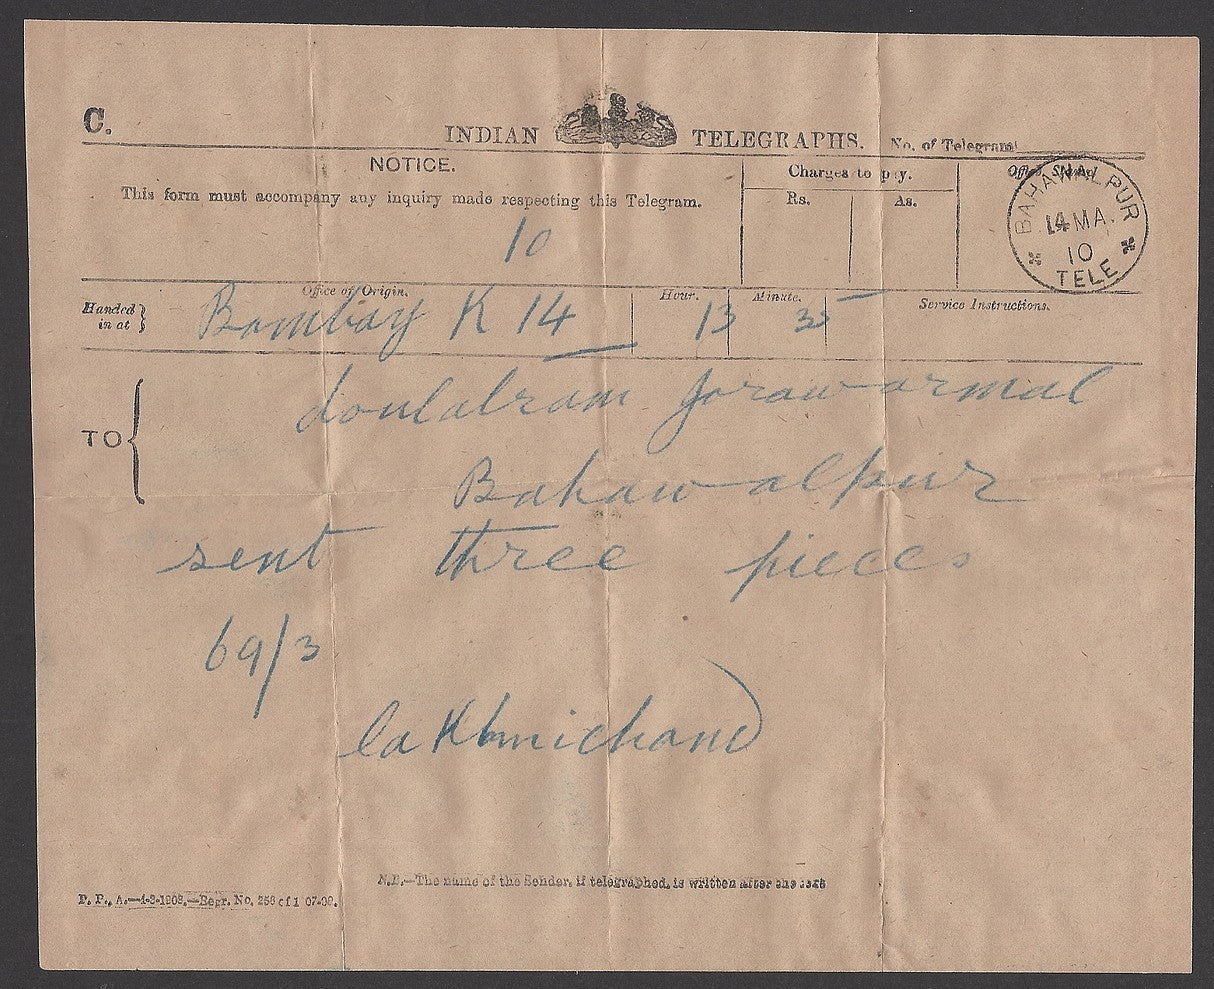 C.
INDIAN TELEGRAPHS. No. of Telegram
NOTICE.
This form must accompany any inquiry made respecting this Telegram.
10
Charges to pay.
Rs. As.
Office Stamp.
BAHAWALPUR
14 MA.
10
TELE
Handed in at
Office of Origin.
Hour. Minute.
Service Instructions.
Bombay K 14 13 35
TO
doulatram Jorawarmal
Bahawalpur
sent three pieces
69/3
lakhmichand
N.B.—The name of the Sender, if telegraphed, is written after the text
P. P., A.—4-8-1908.—Regr. No, 256